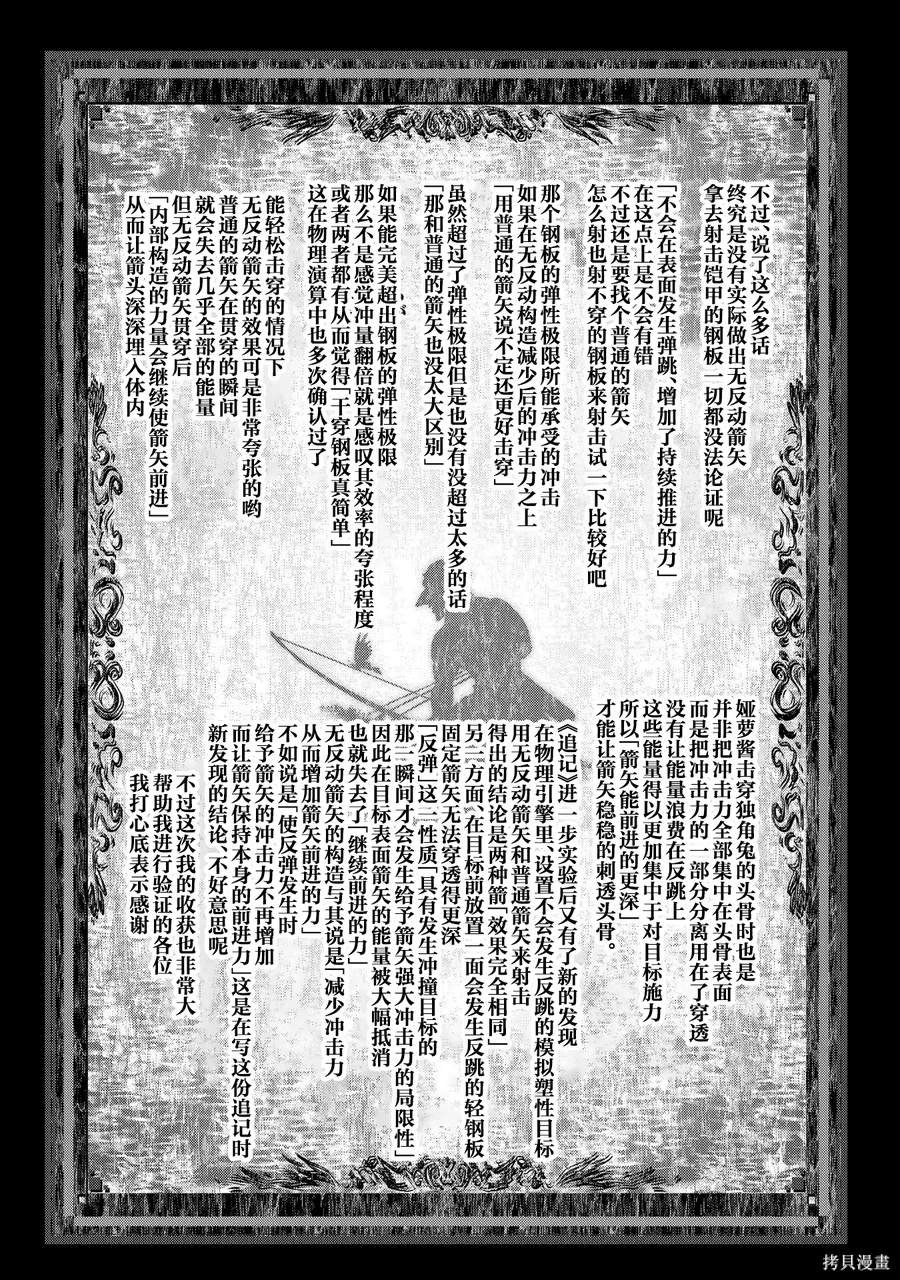 不过、说了这么多话
终究是没有实际做出无反动箭矢
拿去射击铠甲的钢板一切都没法论证呢
「不会在表面发生弹跳、增加了持续推进的力」
在这点上是不会有错
不过还是要找个普通的箭矢
怎么射也射不穿的钢板来射击试一下比较好吧
那个钢板的弹性极限所能承受的冲击
如果在无反动构造减少后的冲击力之上
「用普通的箭矢说不定还更好击穿」
虽然超过了弹性极限但是也没有没超过太多的话
「那和普通的箭矢也没太大区别」
如果能完美超出钢板的弹性极限
那么不是感觉冲量翻倍就是感叹其效率的夸张程度
或者两者都有从而觉得「干穿钢板真简单」
这在物理演算中也多次确认过了
能轻松击穿的情况下
无反动箭矢的效果可是非常夸张的哟
普通的箭矢在贯穿的瞬间
就会失去几乎全部的能量
但无反动箭矢贯穿后
「内部构造的力量会继续使箭矢前进」
从而让箭头深深埋入体内
娅萝酱击穿独角兔的头骨时也是
并非把冲击力全部集中在头骨表面
而是把冲击力的一部分分离用在了穿透
没有让能量浪费在反跳上
这些能量得以更加集中于对目标施力
所以「箭矢能前进的更深」
才能让箭矢稳稳的刺透头骨。
《追记》进一步实验后又有了新的发现
在物理引擎里、设置不会发生反跳的模拟塑性目标
用无反动箭矢和普通箭矢来射击
得出的结论是两种箭「效果完全相同」
另一方面、在目标前放置一面会发生反跳的轻钢板
固定箭矢无法穿透得更深
「反弹」这一性质「具有发生冲撞目标的
那一瞬间才会发生给予箭矢强大冲击力的局限性」
因此在目标表面箭矢的能量被大幅抵消
也就失去了「继续前进的力」
无反动箭矢的构造与其说是「减少冲击力
从而增加箭矢前进的力」
不如说是「使反弹发生时
给予箭矢的冲击力不再增加
而让箭矢保持本身的前进力」这是在写这份追记时
新发现的结论、不好意思呢
不过这次我的收获也非常大
帮助我进行验证的各位
我打心底表示感谢
拷贝漫畫